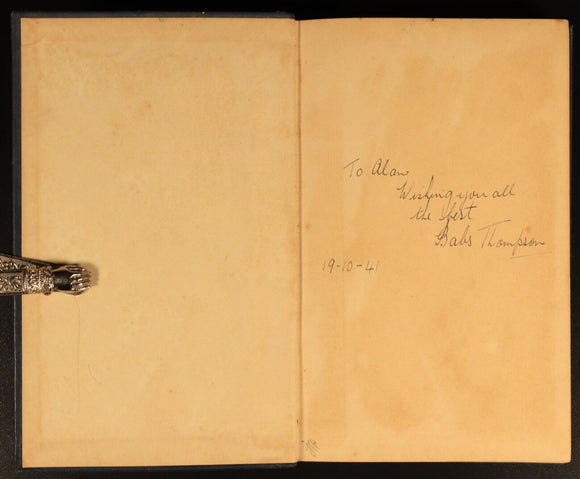 To Alan
Wishing you all
the best
Babs Thompson
19-10-41